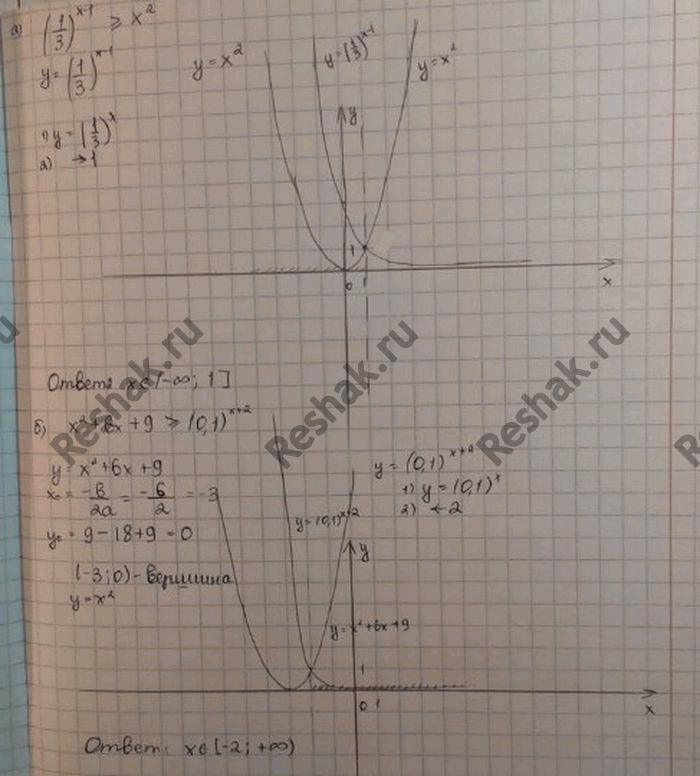 а) (1/3)^(x-1) ≥ x²
y = (1/3)^(x-1)
1) y = (1/3)^x
2) → 1
y = x²
y = (1/3)^(x-1)
y = x²
y
1
0 1
x
Ответ: x∈[-∞; 1]
б) x² + 6x + 9 ≥ (0,1)^(x+2)
y = x² + 6x + 9
x₀ = -b/2a = -6/2 = -3
y₀ = 9 - 18 + 9 = 0
(-3; 0) - вершина
y = x²
y = (0,1)^(x+2)
1) y = (0,1)^x
2) ← 2
y = (0,1)^(x+2)
y
y = x² + 6x + 9
1
0 1
x
Ответ: x∈[-2; +∞)
Reshak.ru
Reshak.ru
Reshak.ru